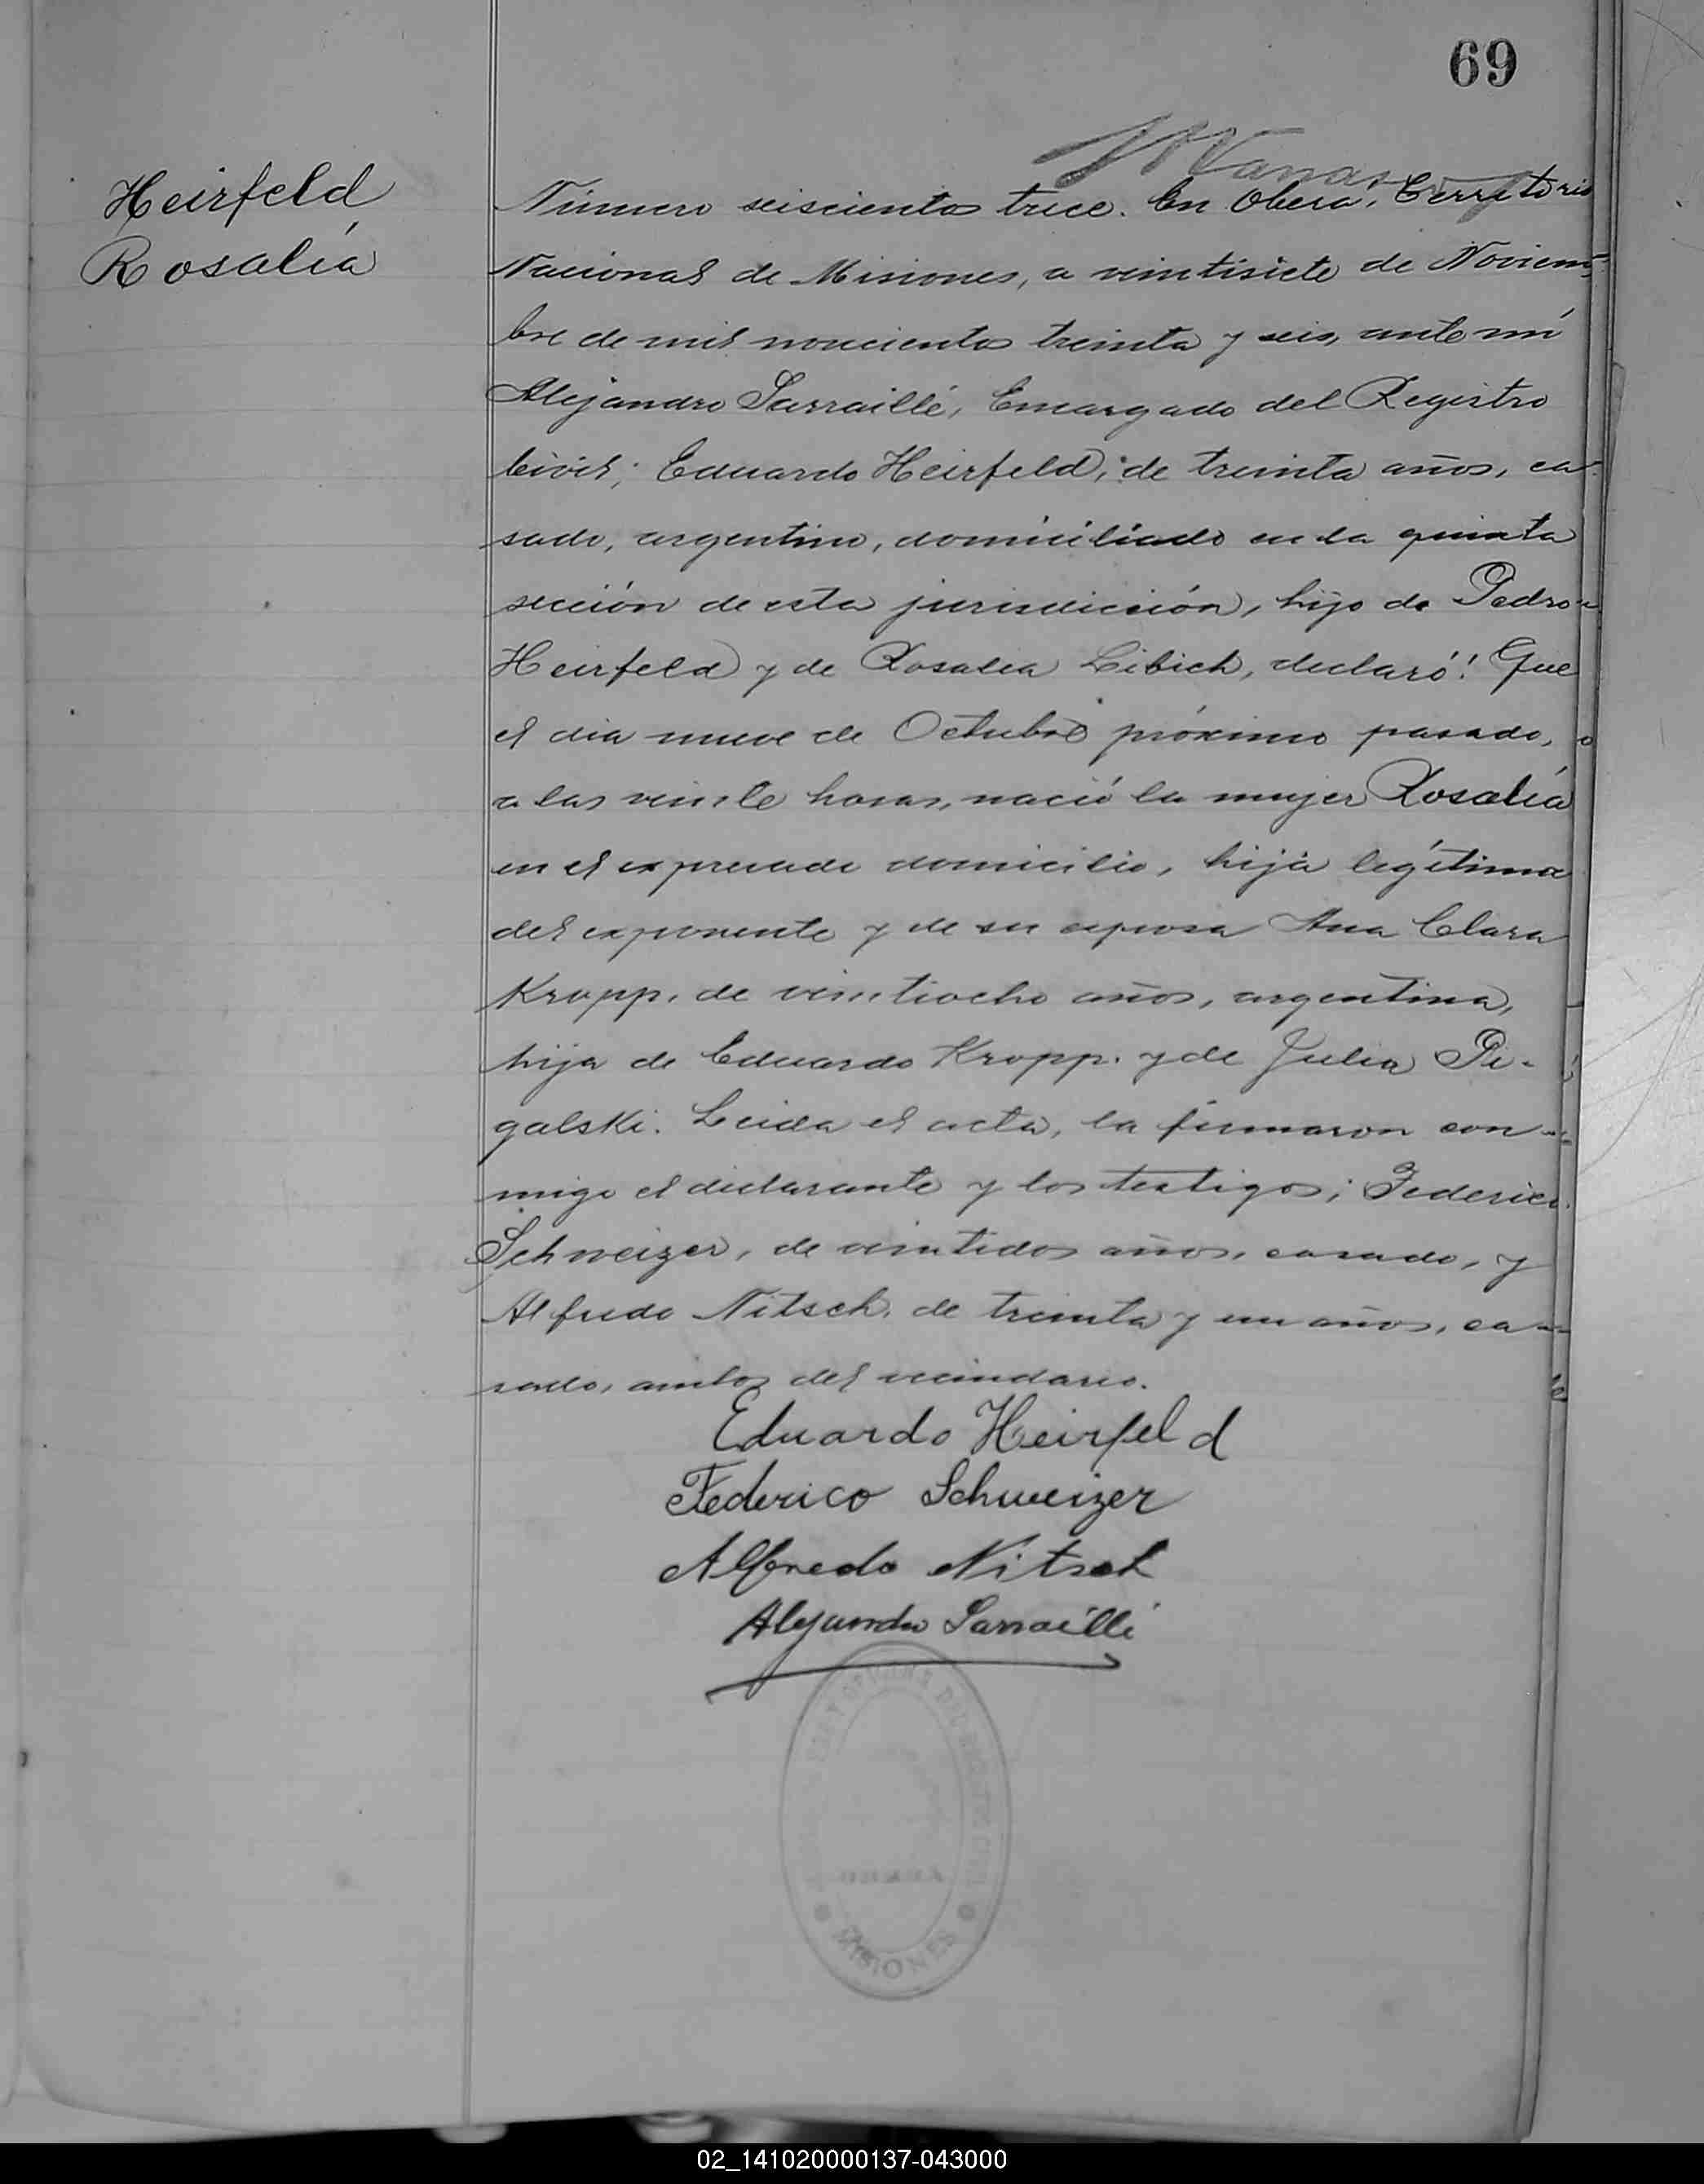 69
Heirfeld
Rosalía
Número seiscientos trece. En Oberá, Territorio
Nacional de Misiones, a veintisiete de Noviem-
bre de mil novecientos treinta y seis, ante mí
Alejandro Sarraillé, Encargado del Registro
Civil; Eduardo Heirfeld, de treinta años, ca-
sado, argentino, domiciliado en la quinta
sección de esta jurisdicción, hijo de Pedro
Heirfeld y de Rosalia Libich, declaró: Que
el dia nueve de Octubre próximo pasado,
a las veinte horas, nació la mujer Rosalía
en el expresado domicilio, hija legítima
del exponente y de su esposa Ana Clara
Kropp, de veintiocho años, argentina,
hija de Eduardo Kropp. y de Julia Pi-
galski. Leida el acta, la firmaron con-
migo el declarante y los testigos; Federico
Schweizer, de veintidos años, casado, y
Alfredo Nitsch, de treinta y un años, ca-
sado, ambos del vecindario.
Eduardo Heirfeld
Federico Schweizer
Alfredo Nitsch
Alejandro Sarraillé
MISIONES
02_141020000137-043000